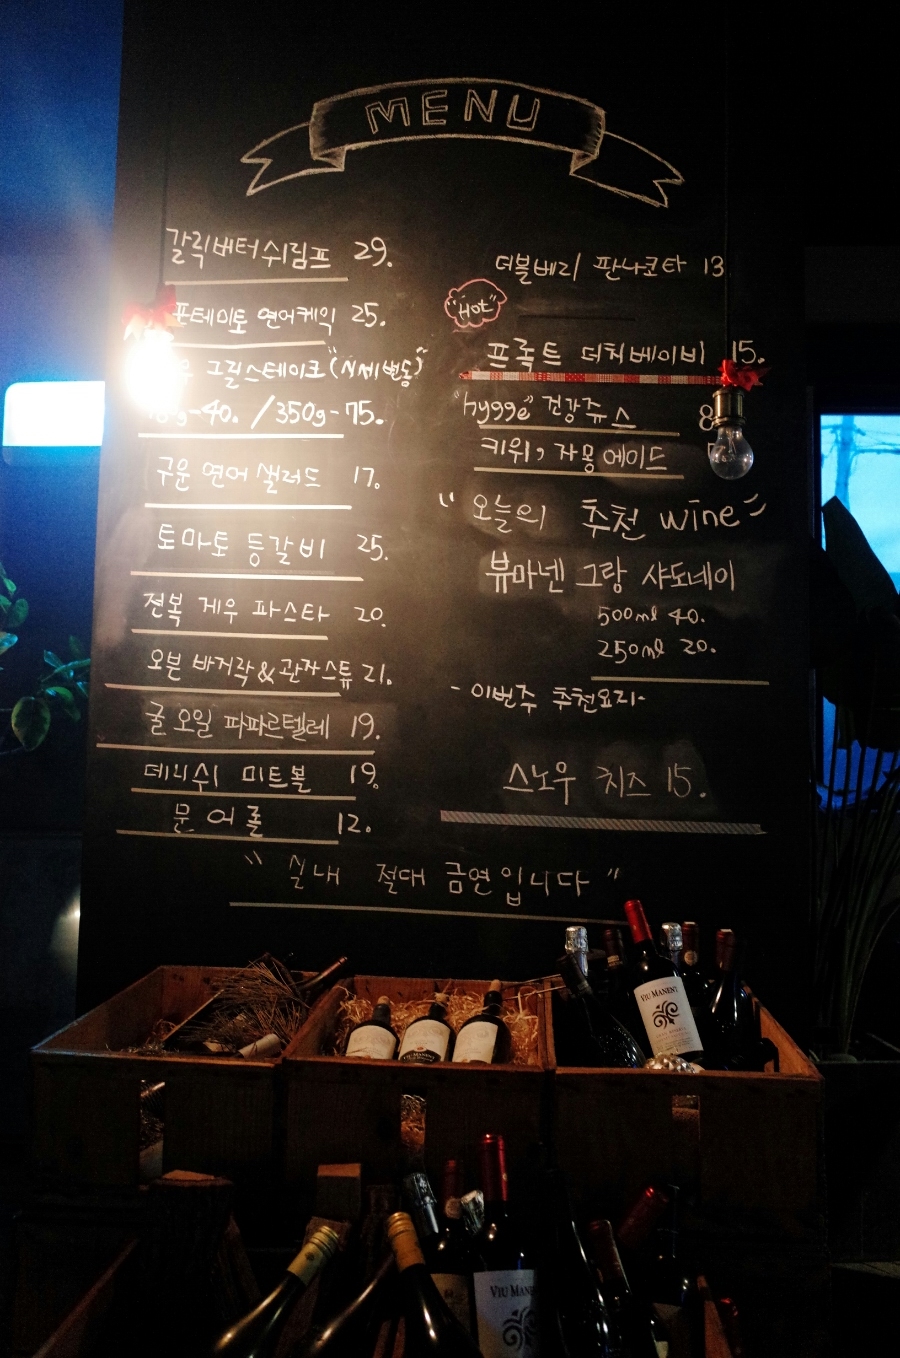 MENU
갈릭버터쉬림프 29.
포테이토 연어케익 25.
그릴스테이크("시세변동")
g-40. / 350g-75.
구운 연어 샐러드 17.
토마토 등갈비 25.
전복 게우 파스타 20.
오븐 바거락&관자스튜 21.
굴 오일 파파르텔레 19.
데니쉬 미트볼 19.
문어롤 12.
더블베리 판나코타 13
"Hot"
프룻트 더치베이비 15.
"hygge" 건강쥬스 8
키위, 자몽에이드
"오늘의 추천 wine"
뷰마넨 그랑 샤도네이
500ml 40.
250ml 20.
-이번주 추천요리-
스노우 치즈 15.
"실내 절대 금연입니다"
VIU MANENT
VIU MANENT
VIU MANE